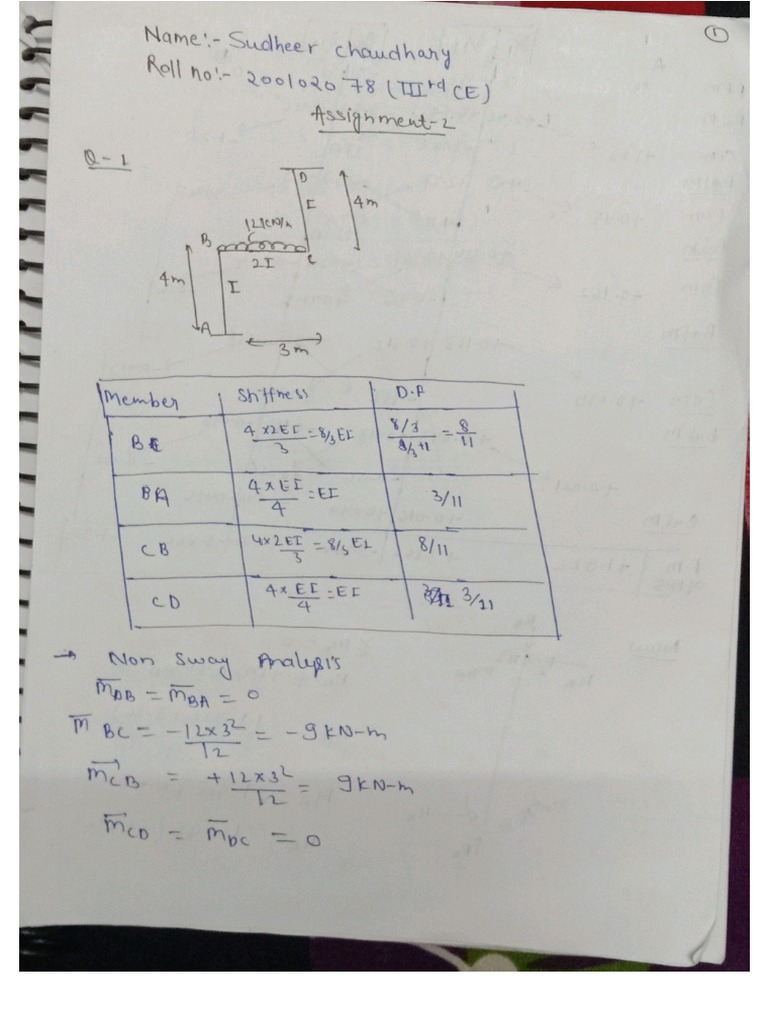 1
Name:- Sudheer chaudhary
Roll no:- 200102078 (IIIrd CE)
Assignment-2
Q-1
D
I
4m
12KN/m
B
C
2I
4m
I
A
3m
Member Stiffness D.F
BC 4×2EI/3 = 8/3 EI 8/3/8/3+1 = 8/11
BA 4×EI/4 = EI 3/11
CB 4×2EI/3 = 8/3 EI 8/11
CD 4×EI/4 = EI 3/11
→ Non Sway Analysis
m̅AB = m̅BA = 0
m̅BC = -12×3²/12 = -9KN-m
m̅CB = +12×3²/12 = 9KN-m
m̅CD = m̅DC = 0